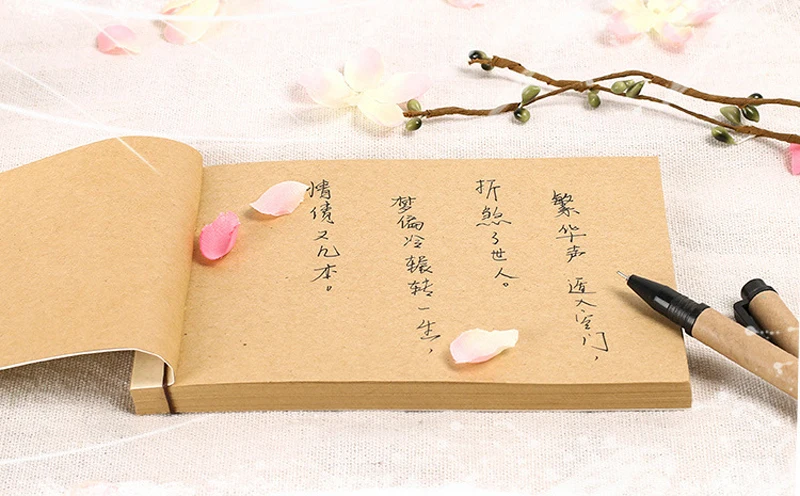 繁华声 遁入空门，
折煞了世人。
梦偏冷辗转一生，
情债又几本。